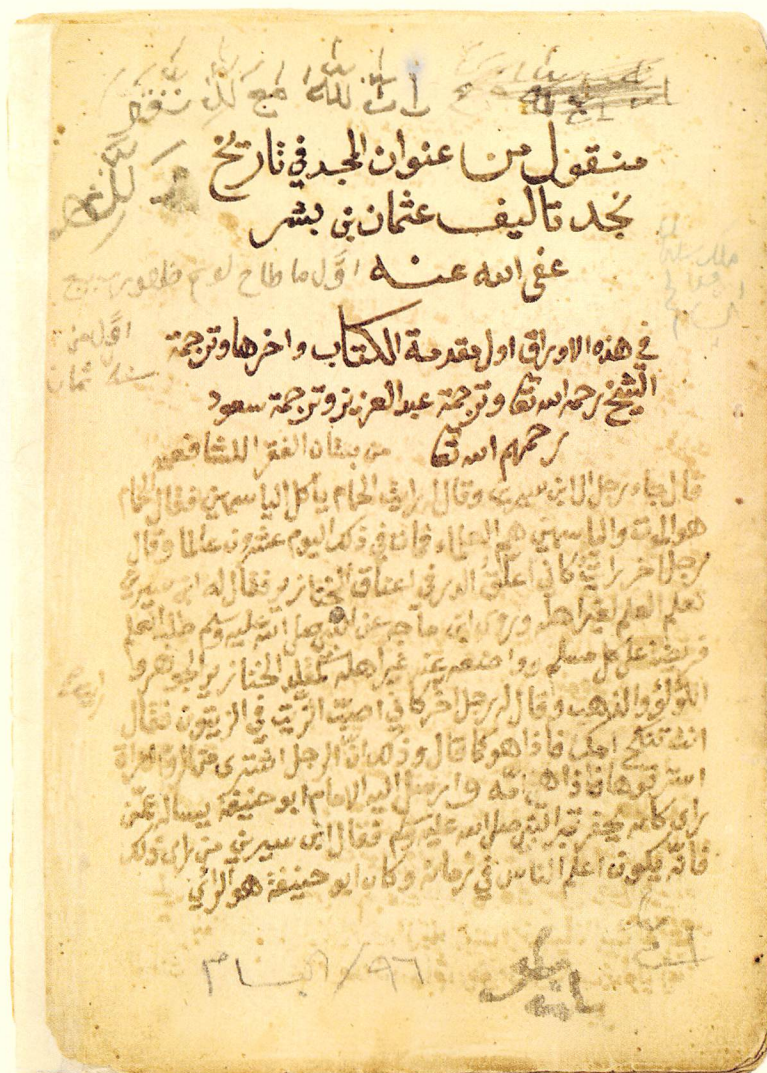 ان الله مع
منقول من عنوان المجد في تاريخ
نجد تاليف عثمان بن بشر
عفى الله عنه اوّل ما طاح لوم ظهور
اوّل من
سنة ثمان
في هذه الاوراق اول مقدمة الكتاب واخرها وترجمة
الشيخ رحمه الله تعا وترجمة عبد العزيز وترجمة سعود
رحمهم الله تعا
من بستان الفقرا للشافعي
قال جاء رجل الا ابن سيرين وقال رايت الحمام ياكل الياسمين فقال الحمام
هو الموت والياسمين هم العلماء فمات في ذلك اليوم عشرون عالما وقال
رجل اخر رايت كاني اعلق الدر في اعناق الخنازير فقال له ابن سيرين
تعلم العلم لغير اهله وروى ابن ماجه عن النبي صلى الله عليه وسلم طلب العلم
فريضة على كل مسلم وواضعه عند غير اهله كمقلد الخنازير الجوهر و
اللولؤ والذهب وقال له رجل اخر كاني اصب الزيت في الزيتون فقال
انت تنكح امك فاذا هو كما قال وذلك انّ الرجل اشترى امراة
استرقوها فاذا هي امّه وارسل اليه الامام ابو حنيفة يساله عمّن
راى كانه يحفر قبر النبي صلى الله عليه وسلم فقال ابن سيرين من راى ذلك
فانّه يكون اعلم الناس في زمانه وكان ابو حنيفة هو الرائي